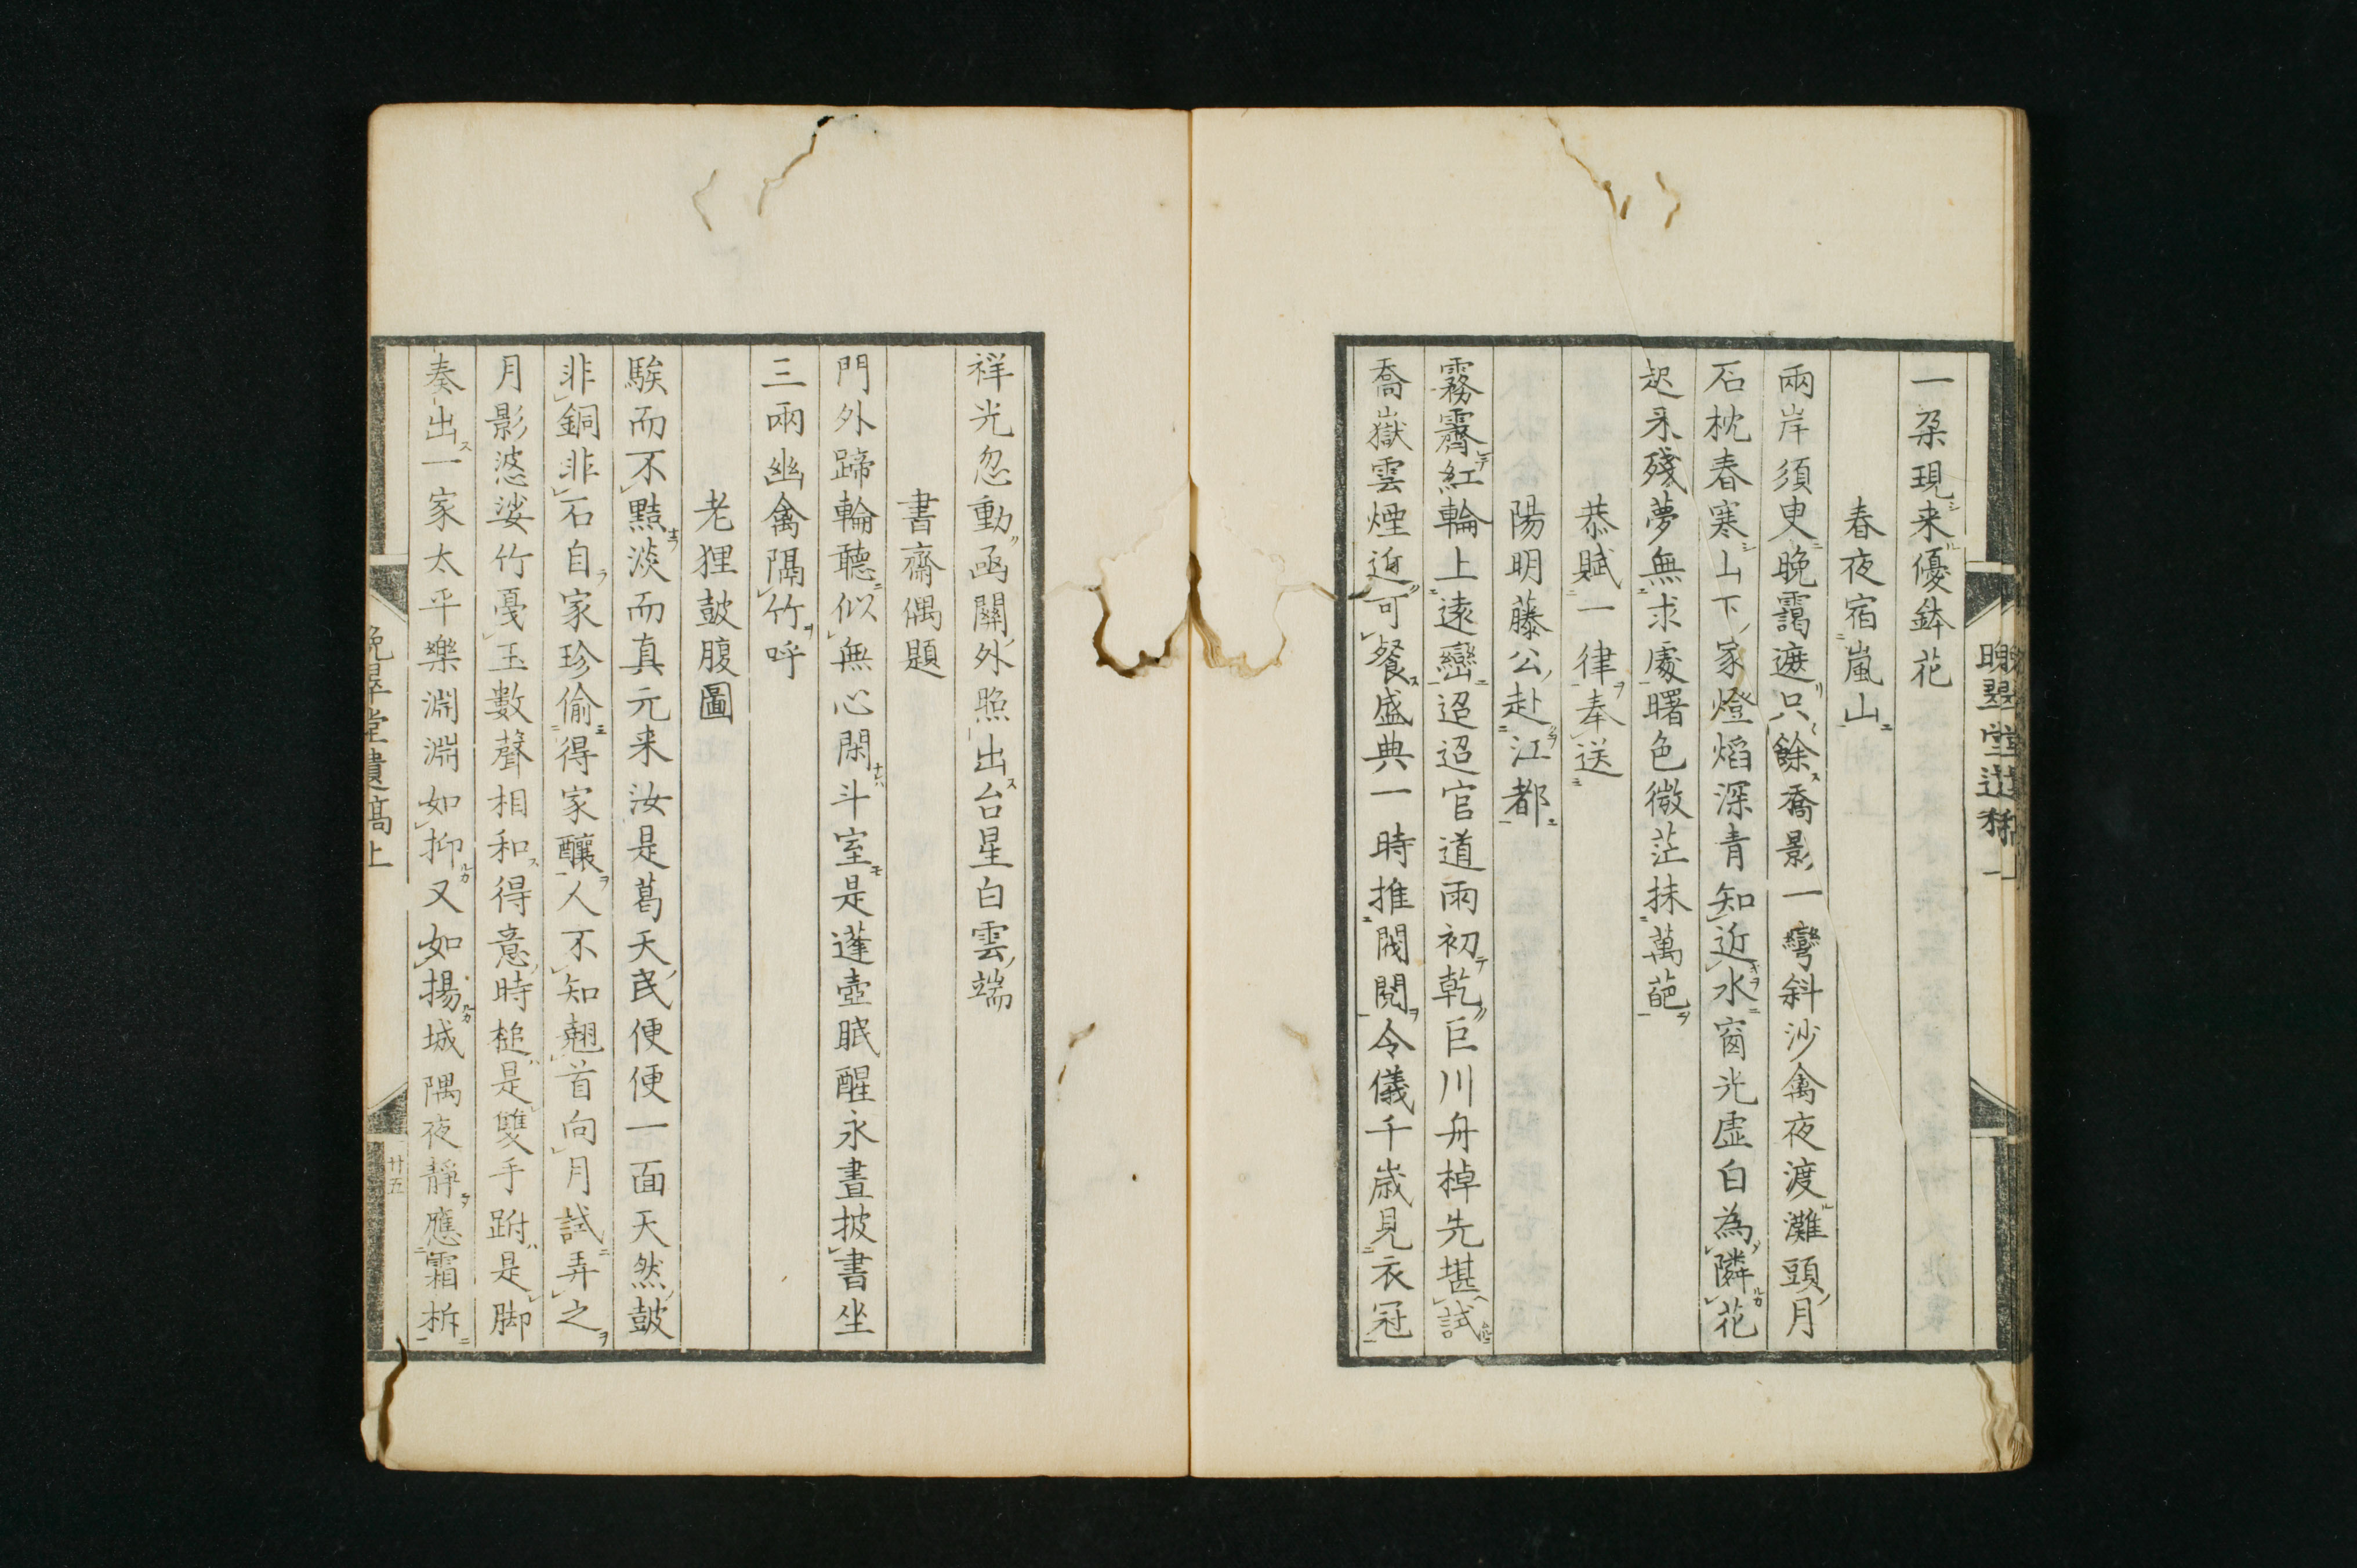 一朶現来優鉢花
春夜宿嵐山
兩岸須臾晩靄遮只餘喬影一彎斜沙禽夜渡灘頭月
石枕春寒山下家燈熖深青知近水窗光虚白為隣花
起来殘夢無求處曙色微茫抹萬葩
恭賦一律奉送
陽明藤公赴江都
霧霽紅輪上遠巒迢迢官道雨初乾巨川舟棹先堪試
喬嶽雲煙近可餐盛典一時推閥閲令儀千歳見衣冠
祥光忽動函關外照出台星白雲端
書齋偶題
門外蹄輪聽似無心閑斗室是蓬壺眠醒永晝披書坐
三兩幽禽隔竹呼
老狸皷腹圖
騃而不黠淡而真元来汝是葛天民便便一面天然皷
非銅非石自家珍偷得家釀人不知翹首向月試弄之
月影婆娑竹戞玉數聲相和得意時槌是雙手跗是脚
奏出一家太平樂淵淵如抑又如揚城隅夜靜應霜柝
晩翠堂遺稿上
廿五